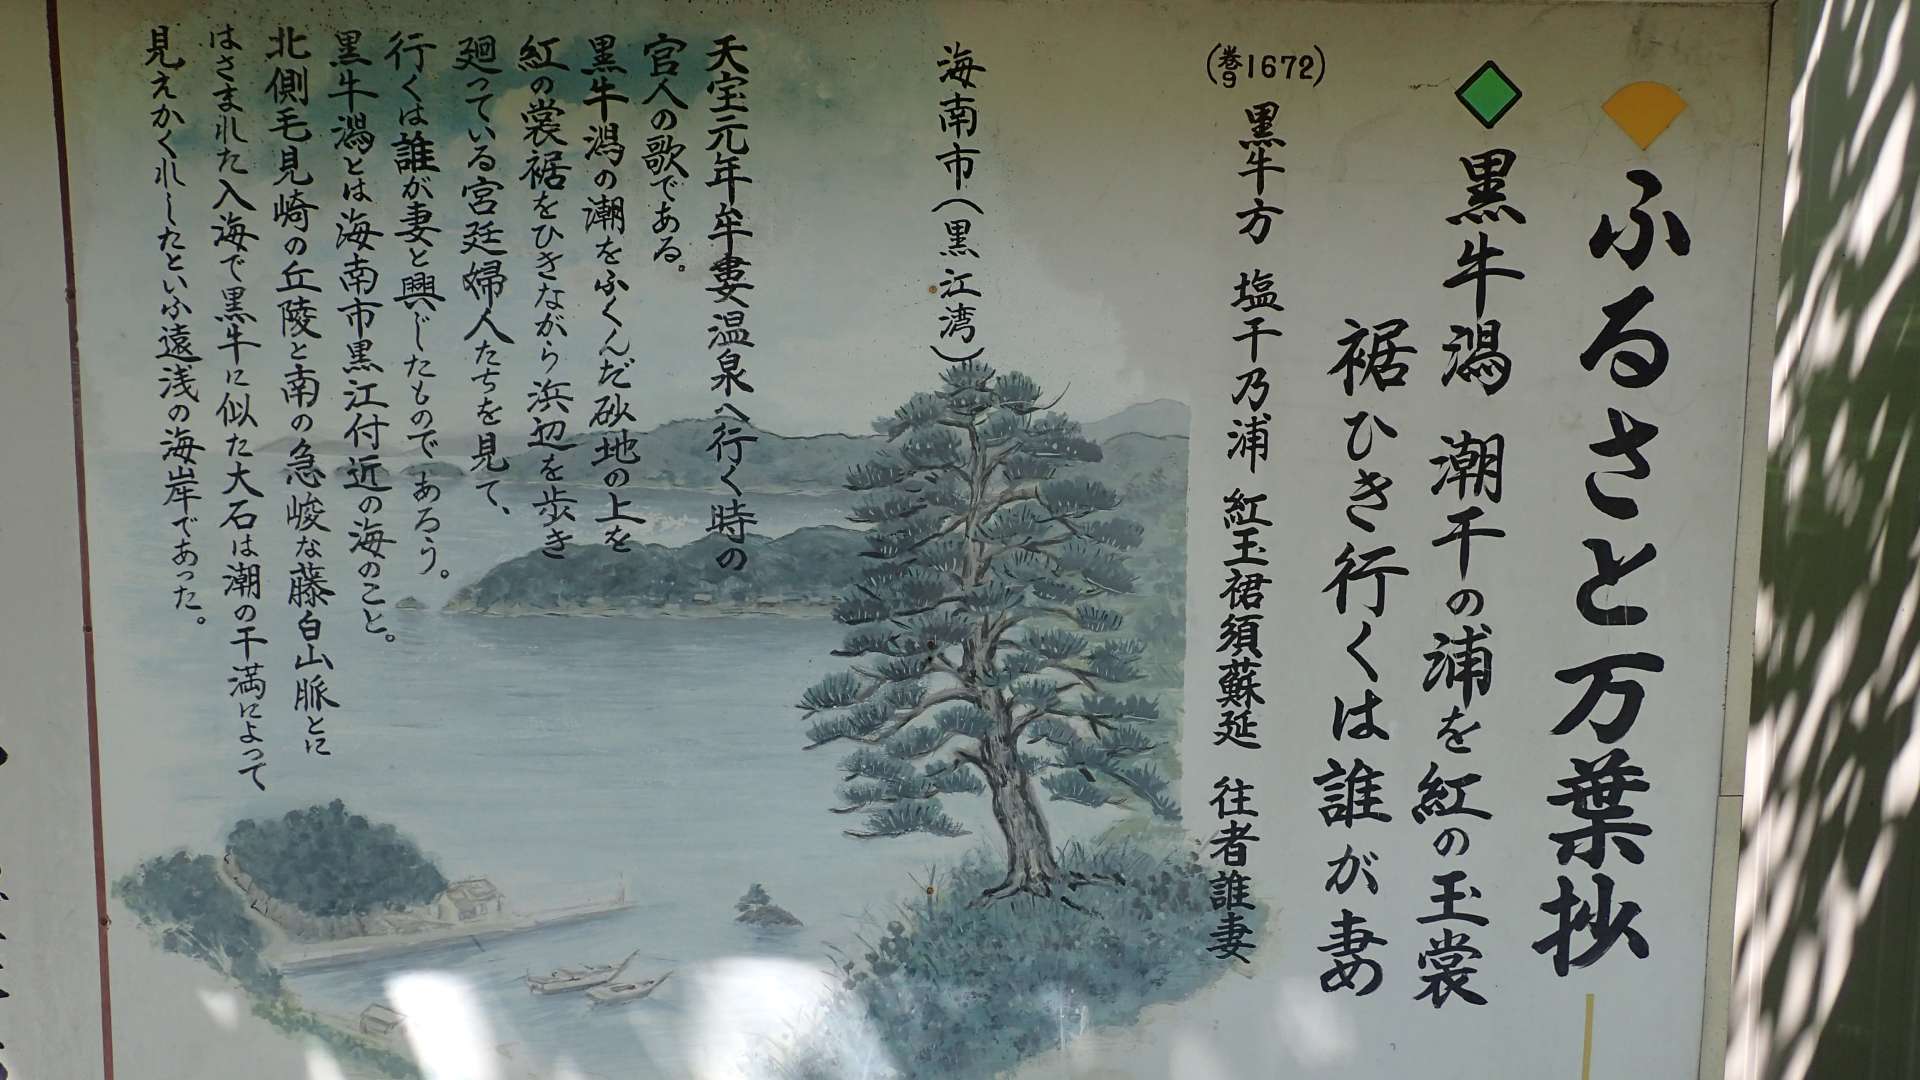 ふるさと万葉抄
黒牛潟 潮干の浦を紅の玉裳
裾ひき行くは誰が妻
(巻9 1672)
黒牛方 塩干乃浦 紅玉裙須蘇延 往者誰妻
海南市(黒江湾)
天宝元年牟婁温泉へ行く時の
官人の歌である。
黒牛潟の潮をふくんだ砂地の上を
紅の裳裾をひきながら浜辺を歩き
廻っている宮廷婦人たちを見て、
行くは誰が妻と興じたものであろう。
黒牛潟とは海南市黒江付近の海のこと。
北側毛見崎の丘陵と南の急峻な藤白山脈とに
はさまれた入海で黒牛に似た大石は潮の干満によって
見えかくれしたといふ遠浅の海岸であった。